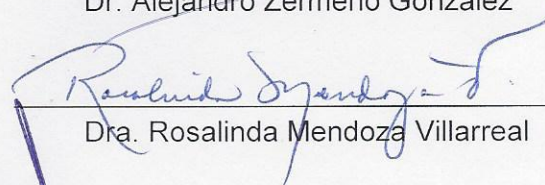 Dr. Alejandro Zermeño González
Rosalinda Mendoza V.
Dra. Rosalinda Mendoza Villarreal